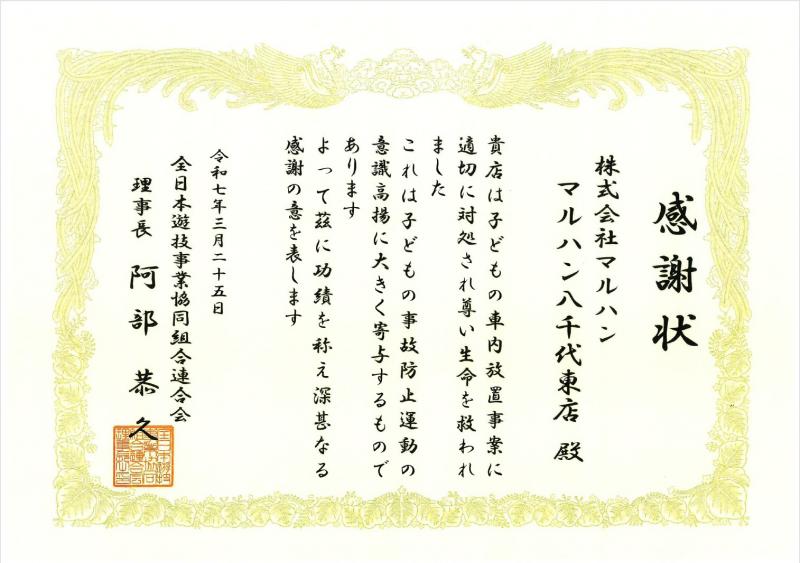 感謝状
株式会社マルハン
マルハン八千代東店 殿
貴店は子どもの車内放置事案に
適切に対処され尊い生命を救われ
ました
これは子どもの事故防止運動の
意識高揚に大きく寄与するもので
あります
よって茲に功績を称え深甚なる
感謝の意を表します
令和七年三月二十五日
全日本遊技事業協同組合連合会
理事長 阿部恭久